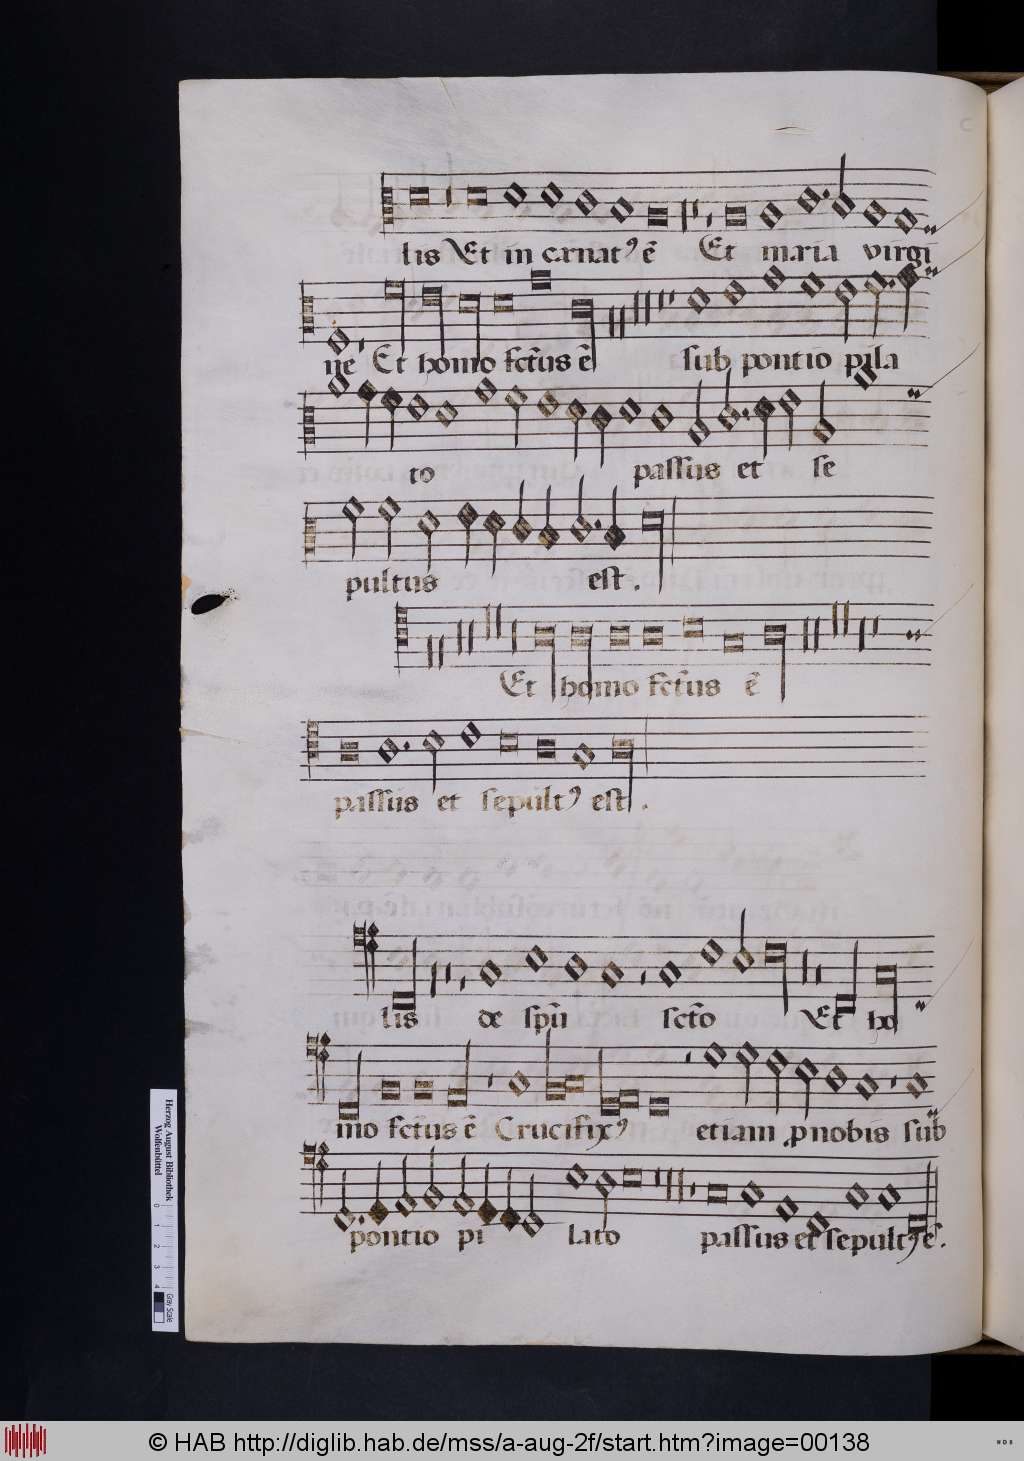 lis Et in carnatꝰ ē Et maria virgi
ne Et homo fct̄us ē sub pontio pila
to passus et se
pultus est .
Et homo fct̄us ē
passus et sepultꝰ est .
lis de spū sct̄o Et ho
mo fct̄us ē Crucifixꝰ etiam ꝓ nobis sub
pontio pi lato passus et sepultꝰ ē .
Herzog August Bibliothek
Wolfenbüttel
0 1 2 3 4 Gray Scale
© HAB http://diglib.hab.de/mss/a-aug-2f/start.htm?image=00138
WDB